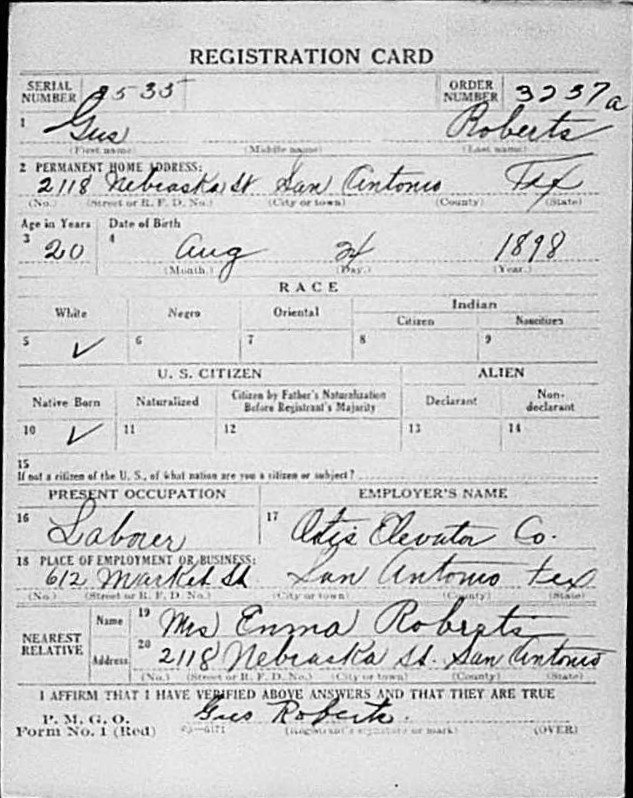 REGISTRATION CARD
SERIAL NUMBER 2535 ORDER NUMBER 3237a
1 Gus Roberts
(First name) (Middle name) (Last name)
2 PERMANENT HOME ADDRESS:
2118 Nebraska St San Antonio Tex
(No.) (Street or R. F. D. No.) (City or town) (County) (State)
Age in Years Date of Birth
3 20 4 Aug 1898
(Month.) (Day.) (Year.)
RACE
White Negro Oriental Indian
Citizen Noncitizen
5 ✓ 6 7 8 9
U. S. CITIZEN ALIEN
Native Born Naturalized Citizen by Father's Naturalization Before Registrant's Majority Declarant Non-declarant
10 ✓ 11 12 13 14
15
If not a citizen of the U. S., of what nation are you a citizen or subject?
PRESENT OCCUPATION EMPLOYER'S NAME
16 Laborer 17 Otis Elevator Co.
18 PLACE OF EMPLOYMENT OR BUSINESS:
612 Market St. San Antonio Tex
(No.) (Street or R. F. D. No.) (City or town) (County) (State)
NEAREST RELATIVE Name 19 Mrs Emma Roberts
Address 20 2118 Nebraska St. San Antonio
(No.) (Street or R. F. D. No.) (City or town) (County) (State)
I AFFIRM THAT I HAVE VERIFIED ABOVE ANSWERS AND THAT THEY ARE TRUE
P. M. G. O. Gus Roberts.
Form No. 1 (Red) (Registrant's signature or mark) (OVER)